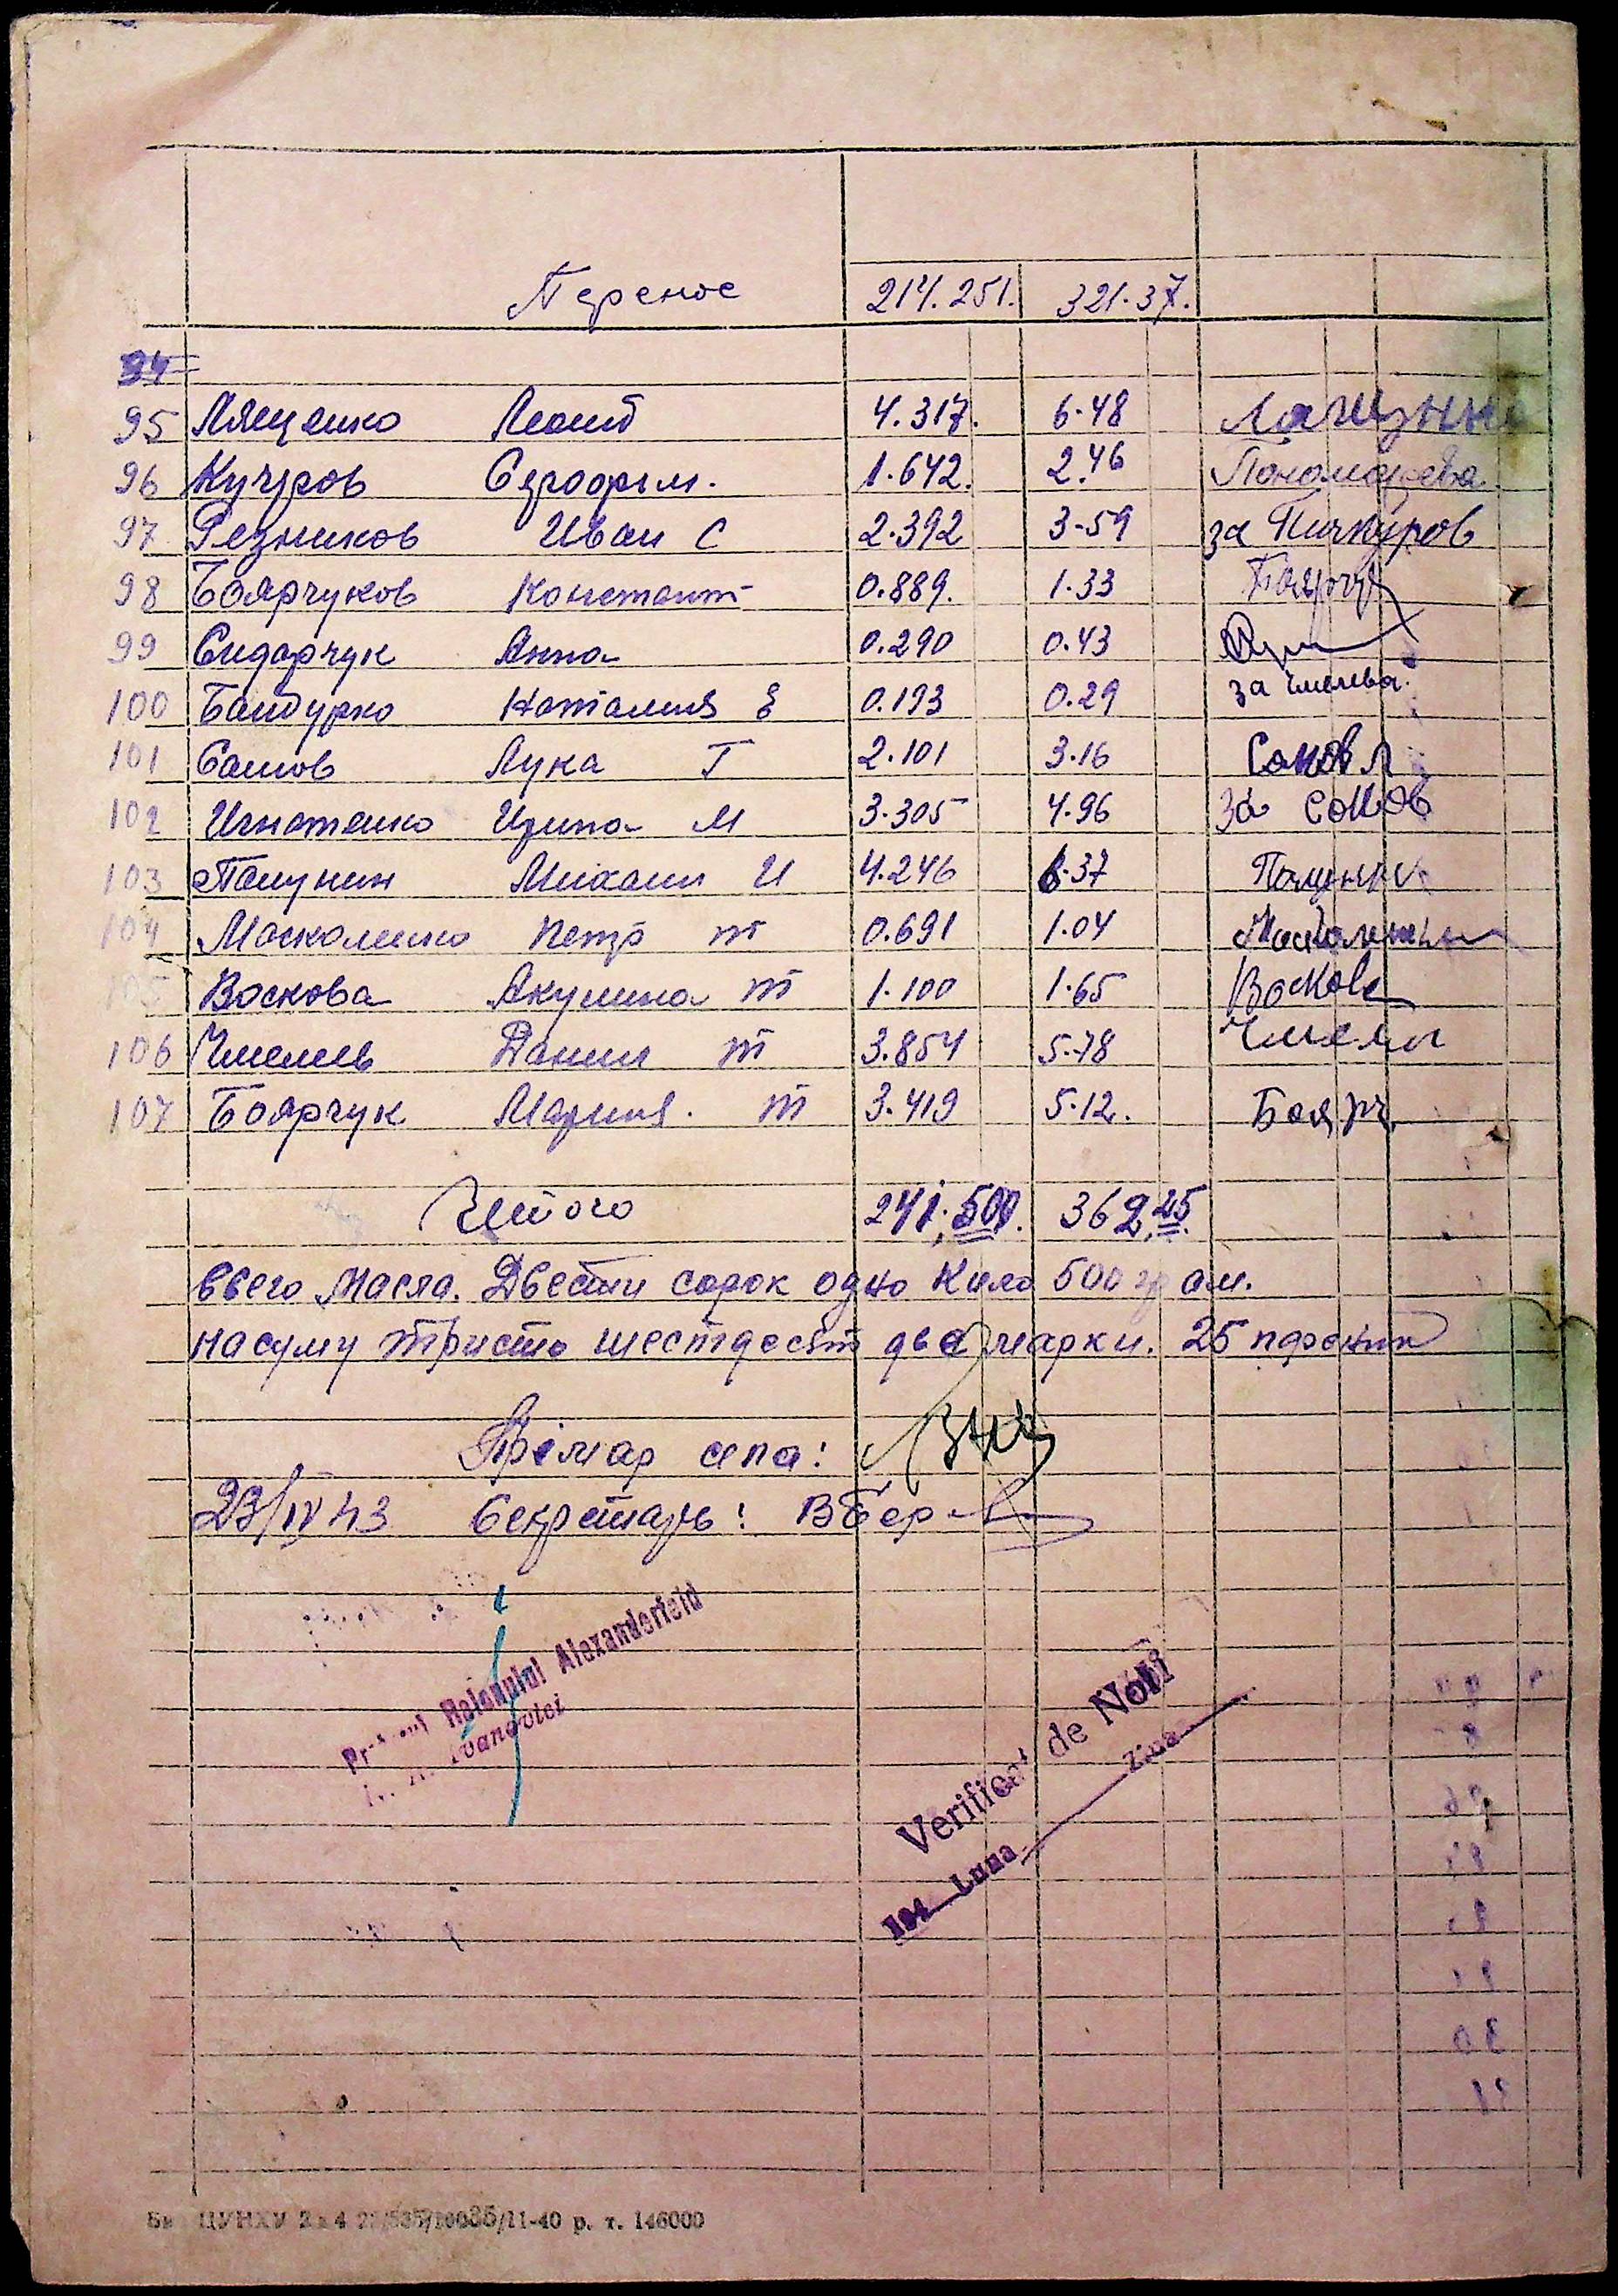 Перенос 214.251. 321.37.
94
95 Лященко Леонид 4.317. 6.48
96 Кучеров Серафим. 1.642. 2.46 Пономарева
97 Резников Иван С 2.392 3-59 за Пичкуров
98 Боярчуков Константт 0.889. 1.33 Боярчу
99 Сидарчук Анна 0.290 0.43
100 Бандурко Наталия Е 0.193 0.29 за Чмелева.
101 Сомов Лука Г 2.101 3.16 Сомов Л
102 Игнатенко Ирина М 3.305 4.96 за Сомов
103 Папунин Михаил И 4.246 6.37
104 Москаленко Петро т 0.691 1.04
105 Воскова Акулина т 1.100 1.65 Воскова
106 Чмелев Данил т 3.854 5.78 Чмелл
107 Боярчук Мария. т 3.419 5.12. Боярч.
Итого 241.500. 362.25.
всего масла. Двести сорок одно кило 500 грам.
на суму триста шестдесят две марки. 25 пфеник
Прімар села:
23/IV 43 Секретарь:
Raionului Alexanderfeld
Ivanovlei
Verificat de Noi
194 Luna Ziua
ЦУНХУ 11-40 р. т. 146000